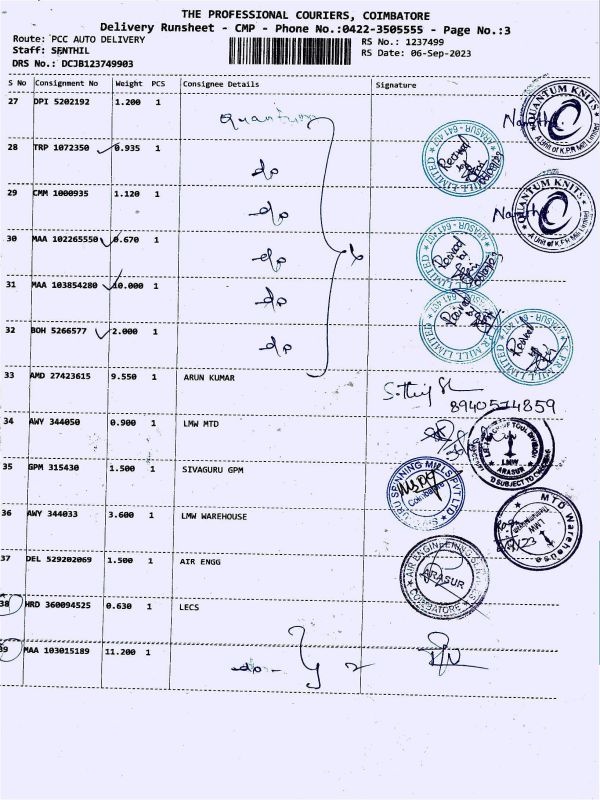 THE PROFESSIONAL COURIERS, COIMBATORE
Delivery Runsheet - CMP - Phone No.:0422-3505555 - Page No.:3
Route: PCC AUTO DELIVERY
RS No.: 1237499
Staff: SENTHIL
RS Date: 06-Sep-2023
DRS No.: DCJB123749903
S No Consignment No Weight PCS Consignee Details Signature
27 DPI 5202192 1.200 1 Quantum
QUANTUM KNITS
A Unit of K.P.R Mill Limited
28 TRP 1072350 0.935 1 do
MILL LIMITED ARASUR - 641 407
29 CMM 1000935 1.120 1 do
QUANTUM KNITS
A Unit of K.P.R Mill Limited
30 MAA 102265550 0.670 1 do
MILL LIMITED ARASUR - 641 407
31 MAA 103854280 10.000 1 do
32 BOH 5266577 2.000 1 do
6
K.P.R MILL LIMITED ARASUR - 641 407
33 AMD 27423615 9.550 1 ARUN KUMAR
8940574859
34 AWY 344050 0.900 1 LMW MTD
LMW
ARASUR
35 GPM 315430 1.500 1 SIVAGURU GPM
SPINNING MILLS PVT LTD
Coimbatore
36 AWY 344033 3.600 1 LMW WAREHOUSE
MTD Warehouse
37 DEL 529202069 1.500 1 AIR ENGG
AIR ENGINEERING
ARASUR
COIMBATORE
38 HRD 360094525 0.630 1 LECS
39 MAA 103015189 11.200 1 do - 2